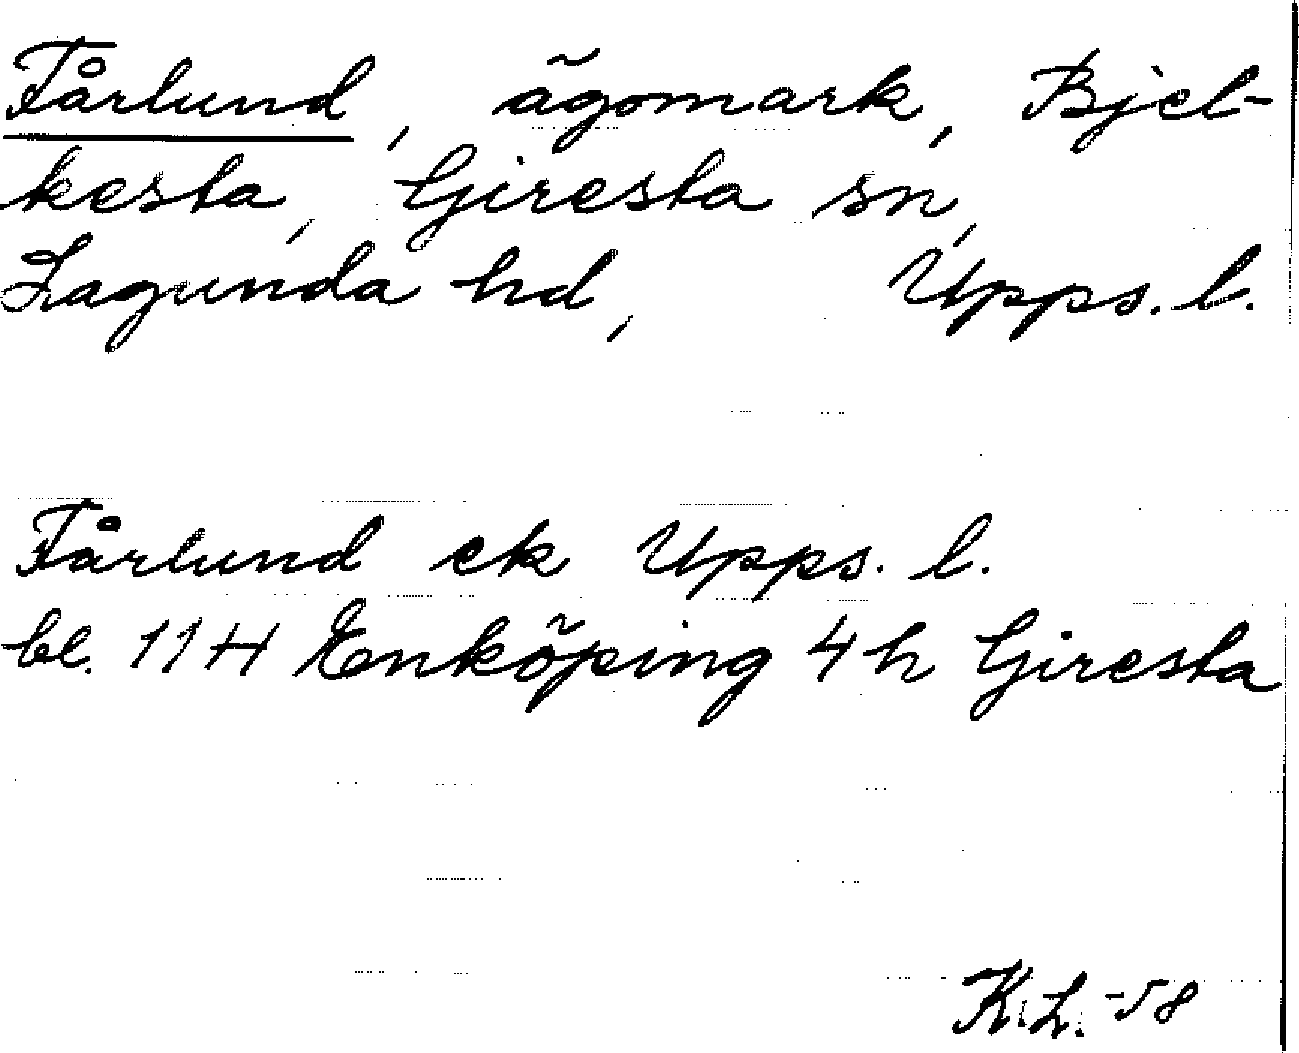 Fårlund, ägomark, Bjel-
kesta, Giresta sn,
Lagunda hd, Upps. l.
Fårlund ek Upps. l.
bl. 11H Enköping 4h Giresta
K.L. -58